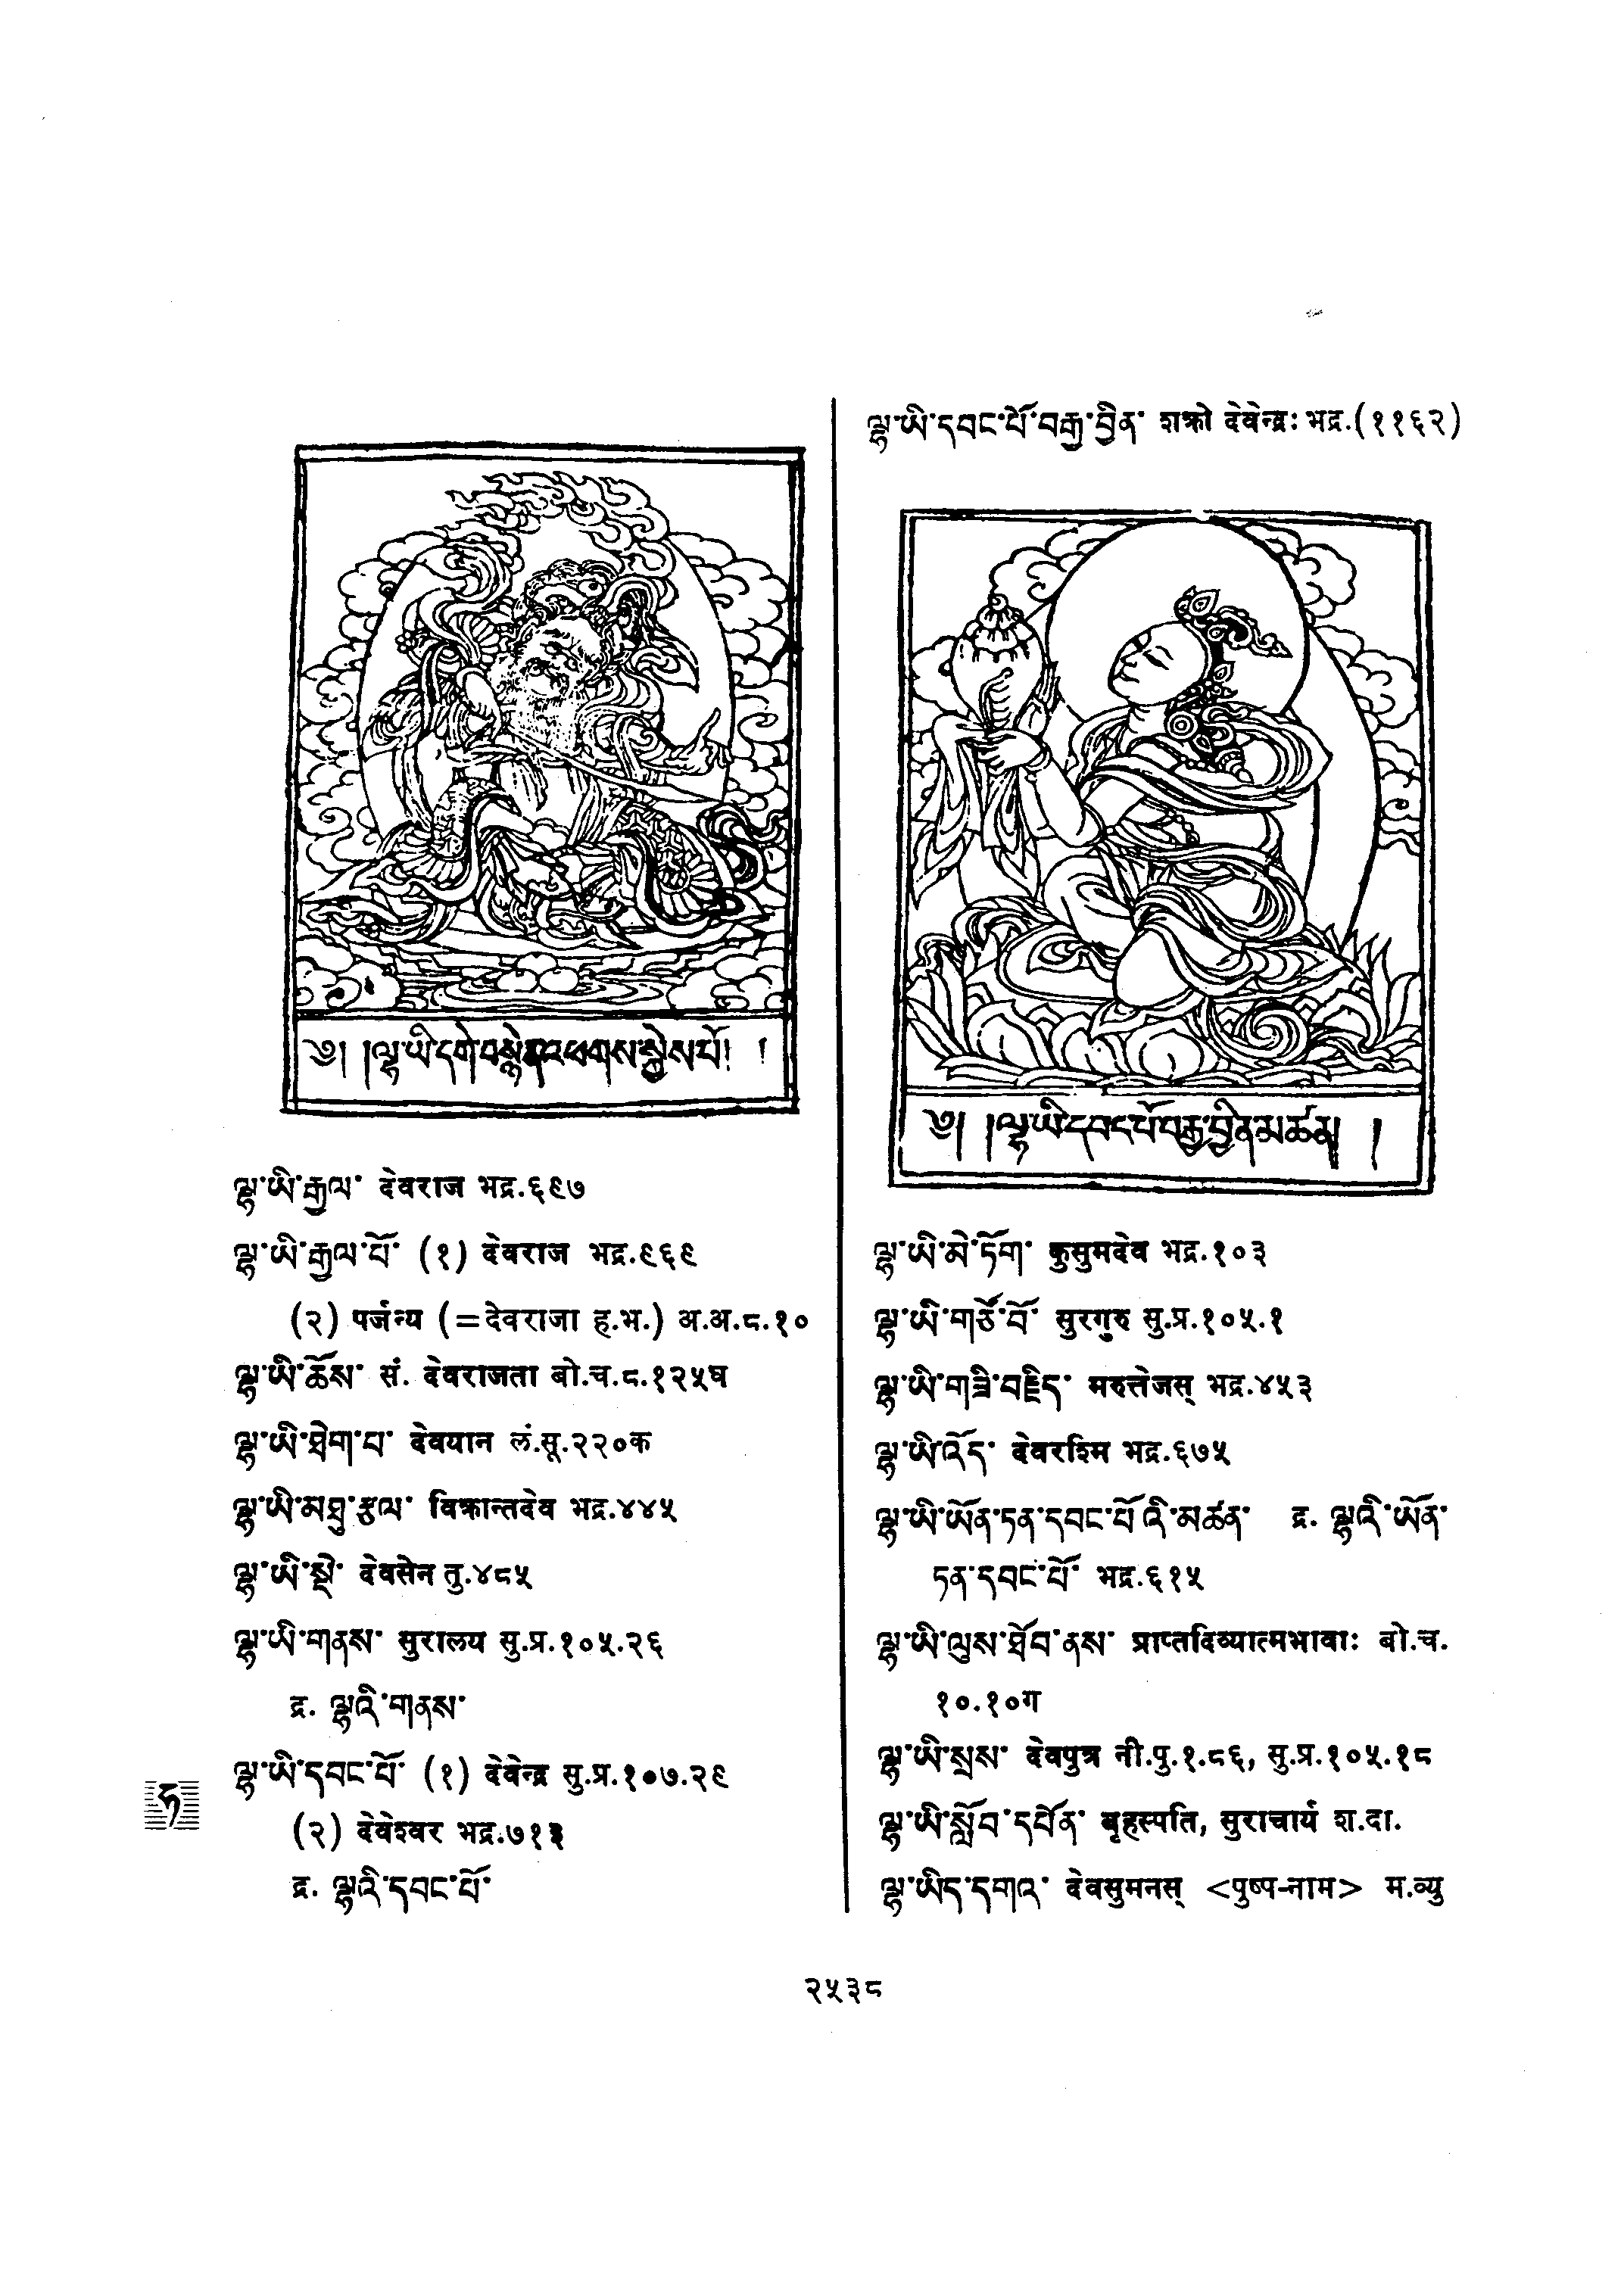 ༄། །ལྷ་ཡི་དགེ་བསྙེན་འཕགས་སྐྱེས་པོ། །
ལྷ་ཡི་རྒྱལ་ देवराज भद्र.६९७
ལྷ་ཡི་རྒྱལ་པོ་ (१) देवराज भद्र.९६९
(२) पर्जन्य (=देवराजा ह.भ.) अ.अ.८.१०
ལྷ་ཡི་ཆོས་ सं. देवराजता बो.च.८.१२५घ
ལྷ་ཡི་ཐེག་པ་ देवयान लं.सू.२२०क
ལྷ་ཡི་མཐུ་རྩལ་ विक्रान्तदेव भद्र.४४५
ལྷ་ཡི་སྡེ་ देवसेन तु.४८५
ལྷ་ཡི་གནས་ सुरालय सु.प्र.१०५.२६
द्र. ལྷའི་གནས་
ལྷ་ཡི་དབང་པོ་ (१) देवेन्द्र सु.प्र.१०७.२९
(२) देवेश्वर भद्र.७१३
द्र. ལྷའི་དབང་པོ་
ཧ
ལྷ་ཡི་དབང་པོ་བརྒྱ་བྱིན་ शक्रो देवेन्द्रः भद्र.(११६२)
༄། །ལྷ་ཡི་དབང་པོ་བརྒྱ་བྱིན་མཚན། །
ལྷ་ཡི་མེ་ཏོག་ कुसुमदेव भद्र.१०३
ལྷ་ཡི་གཙོ་བོ་ सुरगुरु सु.प्र.१०५.१
ལྷ་ཡི་གཟི་བརྗིད་ मरुत्तेजस् भद्र.४५३
ལྷ་ཡི་འོད་ देवरश्मि भद्र.६७५
ལྷ་ཡི་ཡོན་ཏན་དབང་པོ་འི་མཚན་ द्र. ལྷའི་ཡོན་
ཏན་དབང་པོ་ भद्र.६१५
ལྷ་ཡི་ལུས་ཐོབ་ནས་ प्राप्तदिव्यात्मभावाः बो.च.
१०.१०ग
ལྷ་ཡི་སྲས་ देवपुत्र नी.पु.१.८६, सु.प्र.१०५.१८
ལྷ་ཡི་སློབ་དཔོན་ बृहस्पति, सुराचार्य श.दा.
ལྷ་ཡིད་དགའ་ देवसुमनस् <पुष्प-नाम> म.व्यु
२५३८